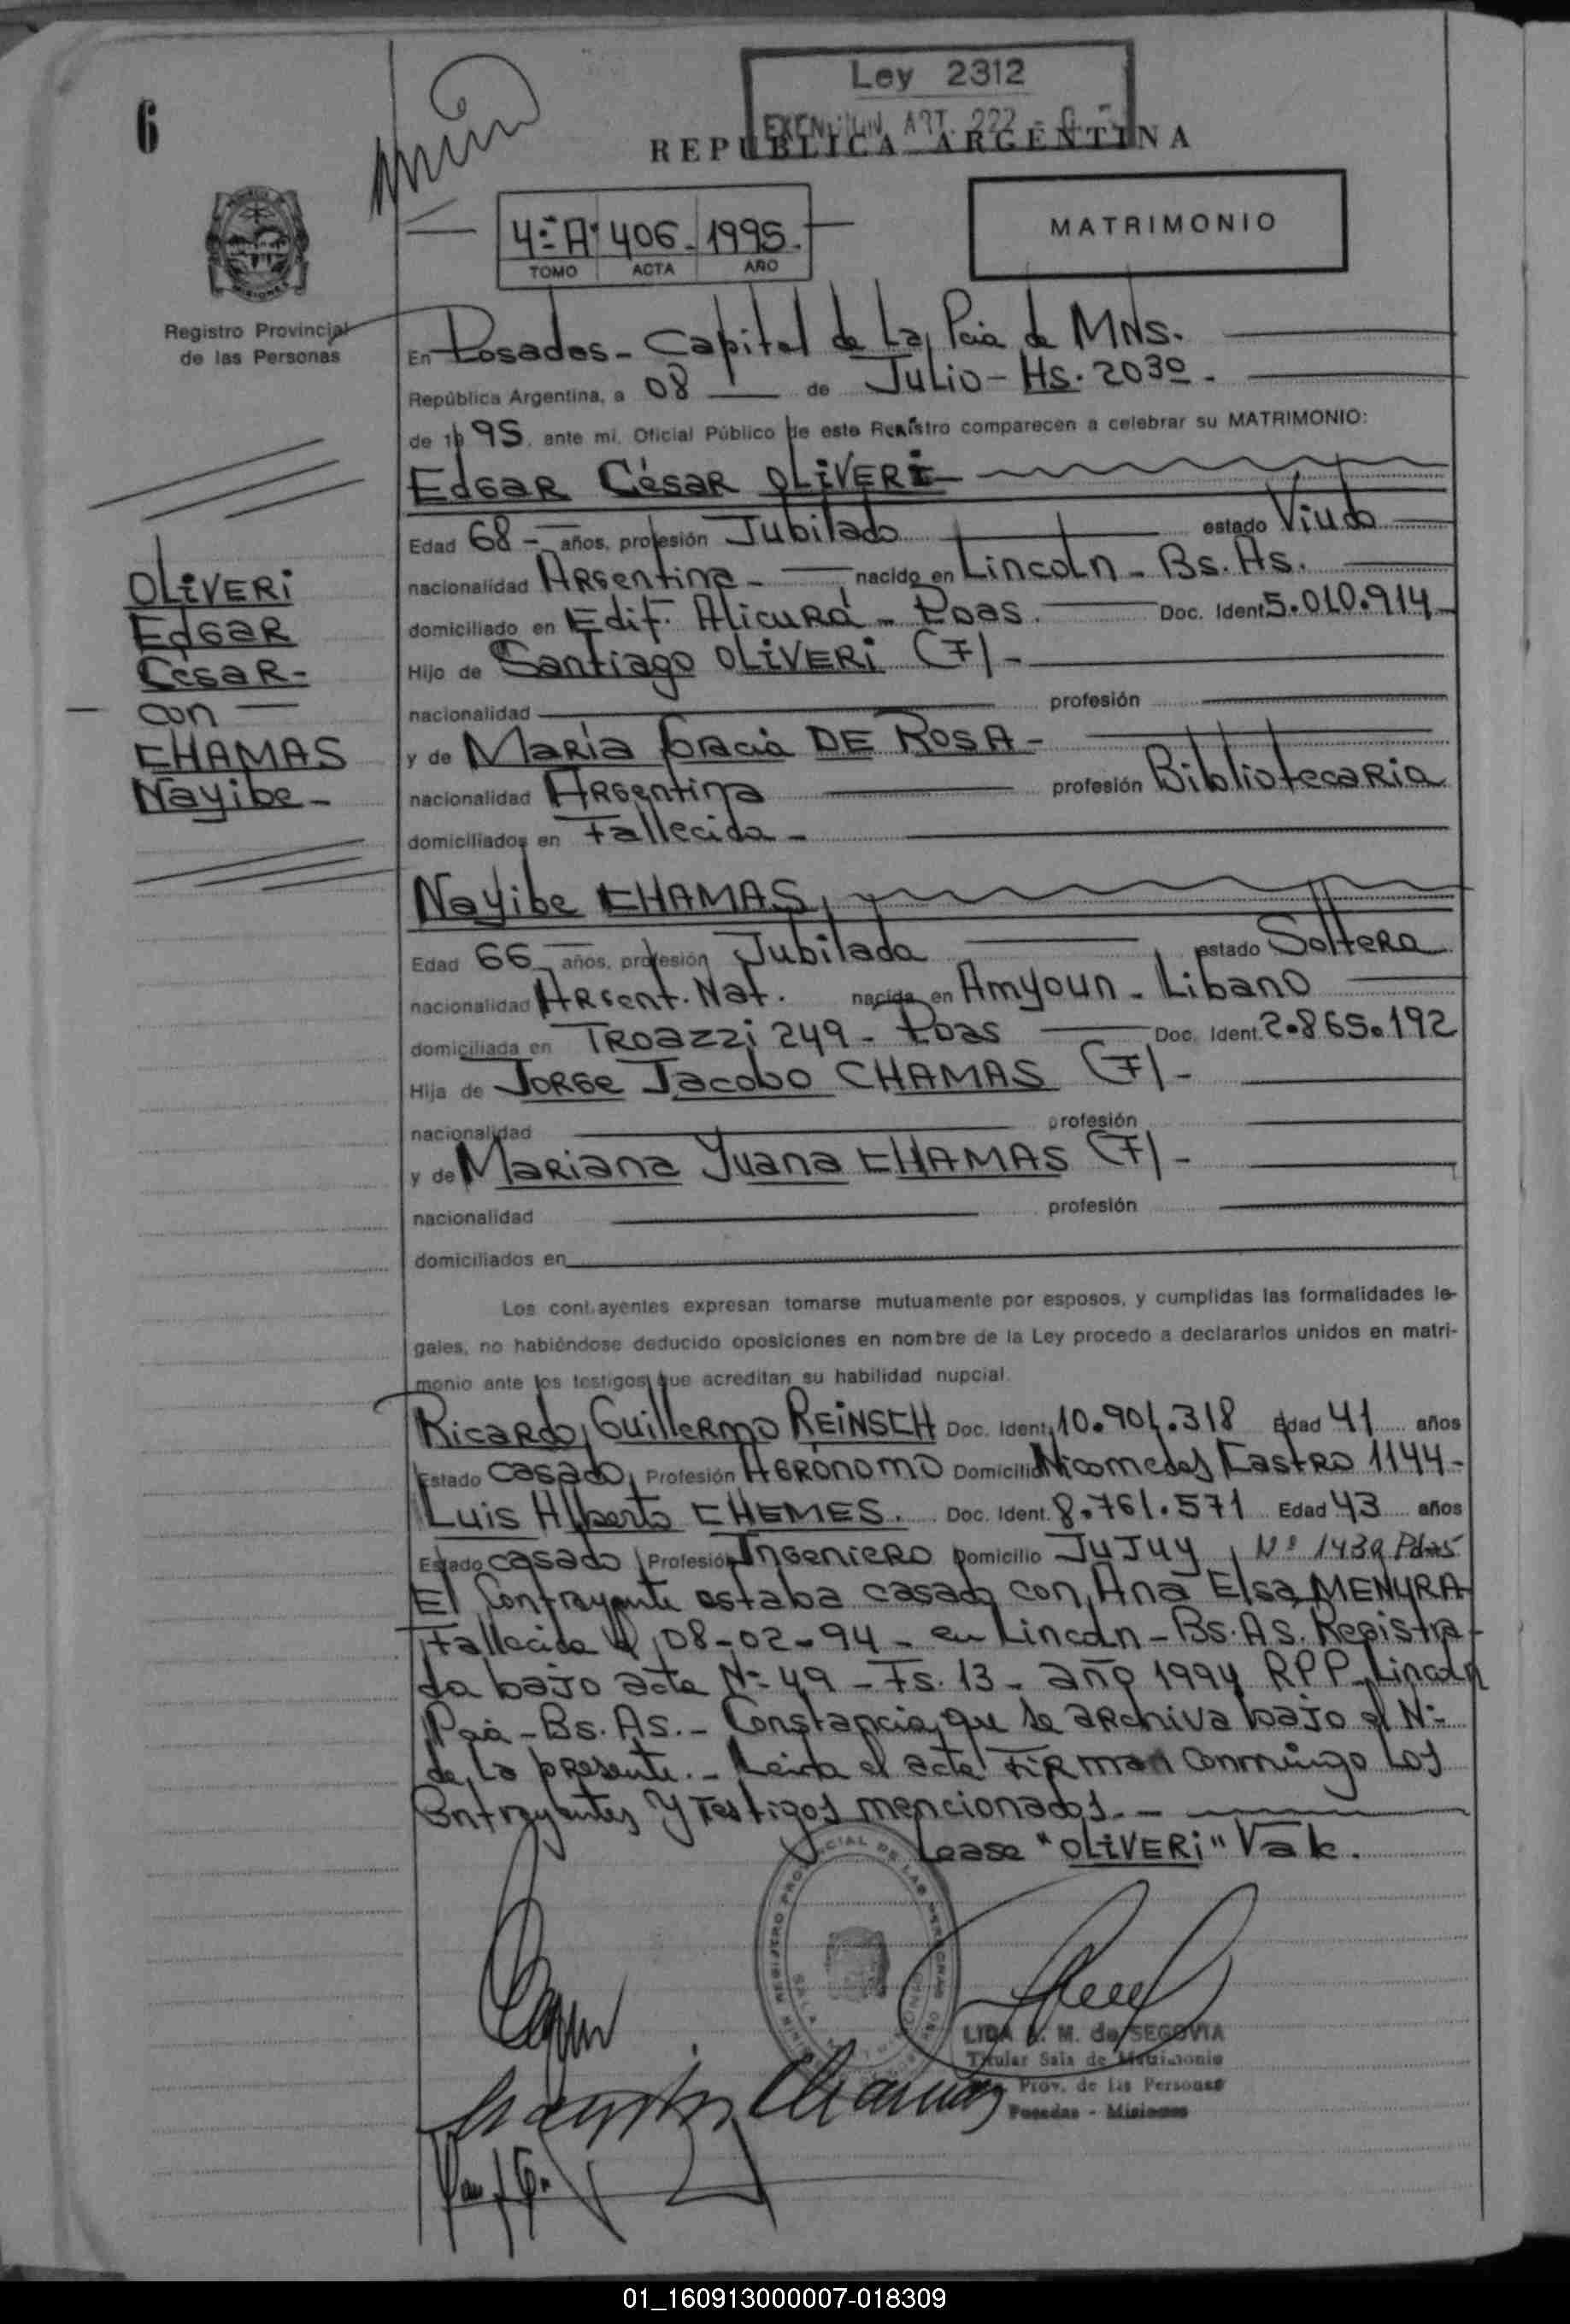 6
Ley 2312
EXENCION ART. 222
REPUBLICA ARGENTINA
MISIONES
4º A. 406. 1995.
TOMO ACTA AÑO
MATRIMONIO
Registro Provincial
de las Personas
En Posadas - Capital de La Pcia de MNS.
República Argentina, a 08 de Julio - Hs. 20 30 .
de 19 95, ante mí, Oficial Público de este Registro comparecen a celebrar su MATRIMONIO:
Edgar César OLIVERI
Edad 68 - años, profesión Jubilado estado Viudo
nacionalidad Argentina - nacido en Lincoln - Bs. As.
domiciliado en Edif. Alicurá - Pdas. Doc. Ident. 5.010.914
Hijo de Santiago OLIVERI (F) -
nacionalidad profesión
y de María Gracia DE ROSA -
nacionalidad Argentina profesión Bibliotecaria
domiciliados en Fallecida -
OLIVERI
Edgar
César -
con
CHAMAS
Nayibe -
Nayibe CHAMAS,
Edad 66 años, profesión Jubilada estado Soltera
nacionalidad Argent. Nat. nacida en Amyoun - Libano
domiciliada en Troazzi 249 - Pdas Doc. Ident. 2.865.192
Hija de Jorge Jacobo CHAMAS (F) -
nacionalidad profesión
y de Mariana Juana CHAMAS (F) -
nacionalidad profesión
domiciliados en
Los contrayentes expresan tomarse mutuamente por esposos, y cumplidas las formalidades le-
gales, no habiéndose deducido oposiciones en nombre de la Ley procedo a declararlos unidos en matri-
monio ante los testigos que acreditan su habilidad nupcial.
Ricardo Guillermo REINSCH Doc. Ident. 10.901.318 Edad 41 años
Estado casado, Profesión Agrónomo Domicilio Nicomedes Castro 1144 -
Luis Alberto CHEMES. Doc. Ident. 8.761.571 Edad 43 años
Estado casado Profesión Ingeniero Domicilio Jujuy Nº 1439 Pdas
El Contrayente estaba casado con Ana Elsa MENYRA
Fallecida el 08-02-94 - en Lincoln - Bs. As. Registra-
da bajo acta Nº 49 - Fs. 13 - año 1994 RPP Lincoln
Pcia - Bs. As. - Constancia que se archiva bajo el Nº
de la presente. - Leida el acta firman conmigo los
Contrayentes y Testigos mencionados. -
Lease "OLIVERI" Vale.
REGISTRO PROVINCIAL DE LAS PERSONAS
LIDA M. de SEGOVIA
Titular Sala de Matrimonio
Prov. de las Personas
Posadas - Misiones
01_160913000007-018309